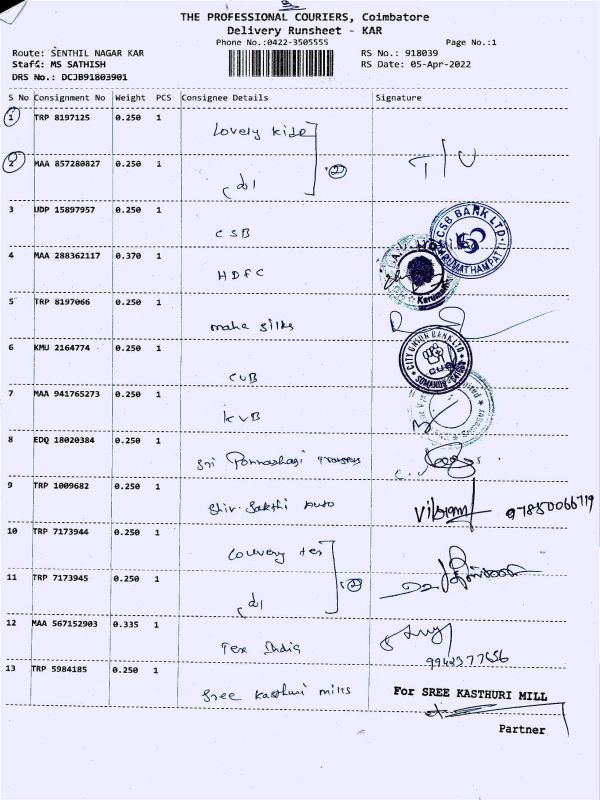 THE PROFESSIONAL COURIERS, Coimbatore
Delivery Runsheet - KAR
Phone No.:0422-3505555 Page No.:1
Route: SENTHIL NAGAR KAR RS No.: 918039
Staff: MS SATHISH RS Date: 05-Apr-2022
DRS No.: DCJB91803901
S No Consignment No Weight PCS Consignee Details Signature
1 TRP 8197125 0.250 1 Lovely kids
2 MAA 857280827 0.250 1 2
3 UDP 15897957 0.250 1 CSB CSB BANK LTD
4 MAA 288362117 0.370 1 HDFC
5 TRP 8197066 0.250 1 maha silks
6 KMU 2164774 0.250 1 CUB CITY UNION BANK LTD CUB
7 MAA 941765273 0.250 1 KVB
8 EDQ 18020384 0.250 1 Sri
9 TRP 1009682 0.250 1 Shiv Sakthi Auto Vikram
10 TRP 7173944 0.250 1
11 TRP 7173945 0.250 1 2
12 MAA 567152903 0.335 1 Tex India
13 TRP 5984185 0.250 1 Sree Kasthuri mills For SREE KASTHURI MILL
Partner